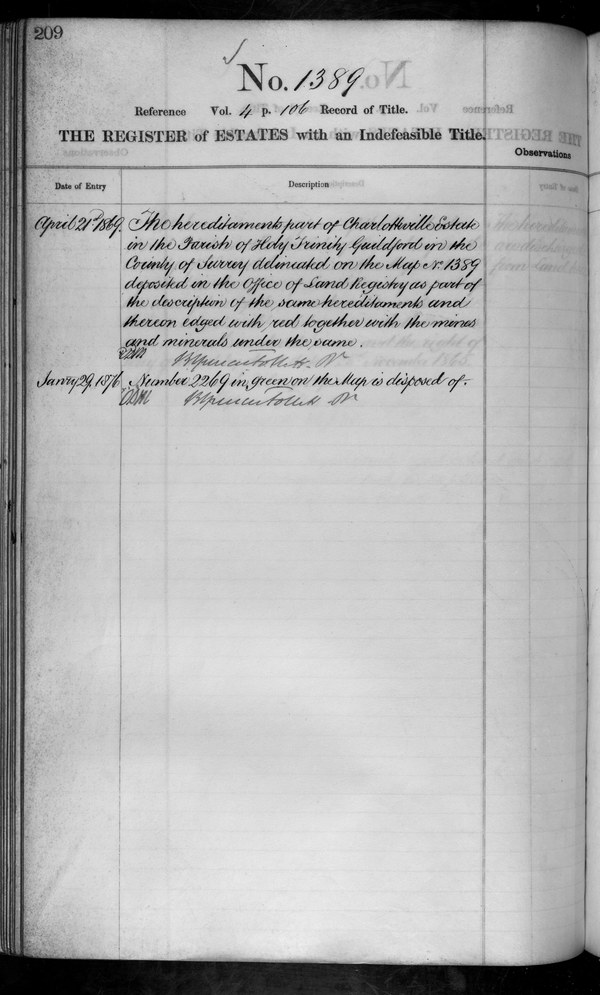 209
No. 1389
Reference Vol. 4 p. 106 Record of Title.
THE REGISTER of ESTATES with an Indefeasible Title.
Observations
Date of Entry
Description
April 21st 1869. The hereditaments part of Charlotteville Estate
in the Parish of Holy Trinity Guildford in the
County of Surrey delineated on the Map No. 1389
deposited in the Office of Land Registry as part of
the description of the same hereditaments and
thereon edged with red together with the mines
and minerals under the same.
Janry 29. 1876. Number 2269 in green on the Map is disposed of.